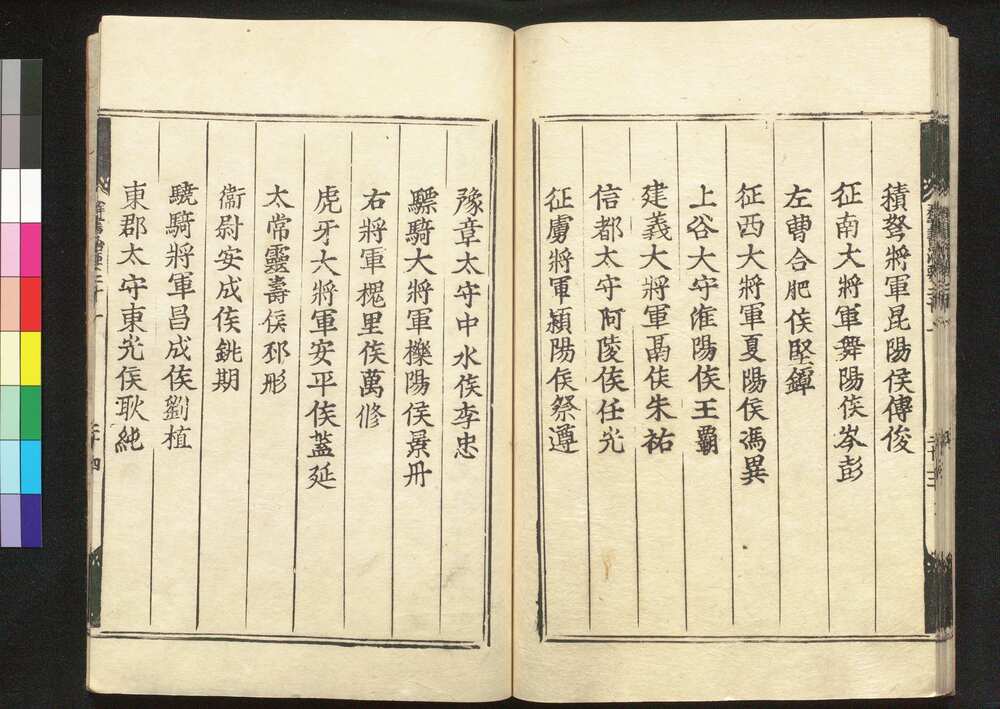 積弩將軍昆陽侯傅俊
征南大將軍舞陽侯岑彭
左曹合肥侯堅鐔
征西大將軍夏陽侯馮異
上谷大守淮陽侯王霸
建義大將軍鬲侯朱祐
信都太守阿陵侯任光
征虜將軍潁陽侯祭遵
豫章太守中水侯李忠
驃騎大將軍櫟陽侯景丹
右將軍槐里侯萬修
虎牙大將軍安平侯蓋延
太常靈壽侯邳彤
衞尉安成侯銚期
驍騎將軍昌成侯劉植
東郡太守東光侯耿純
二十四